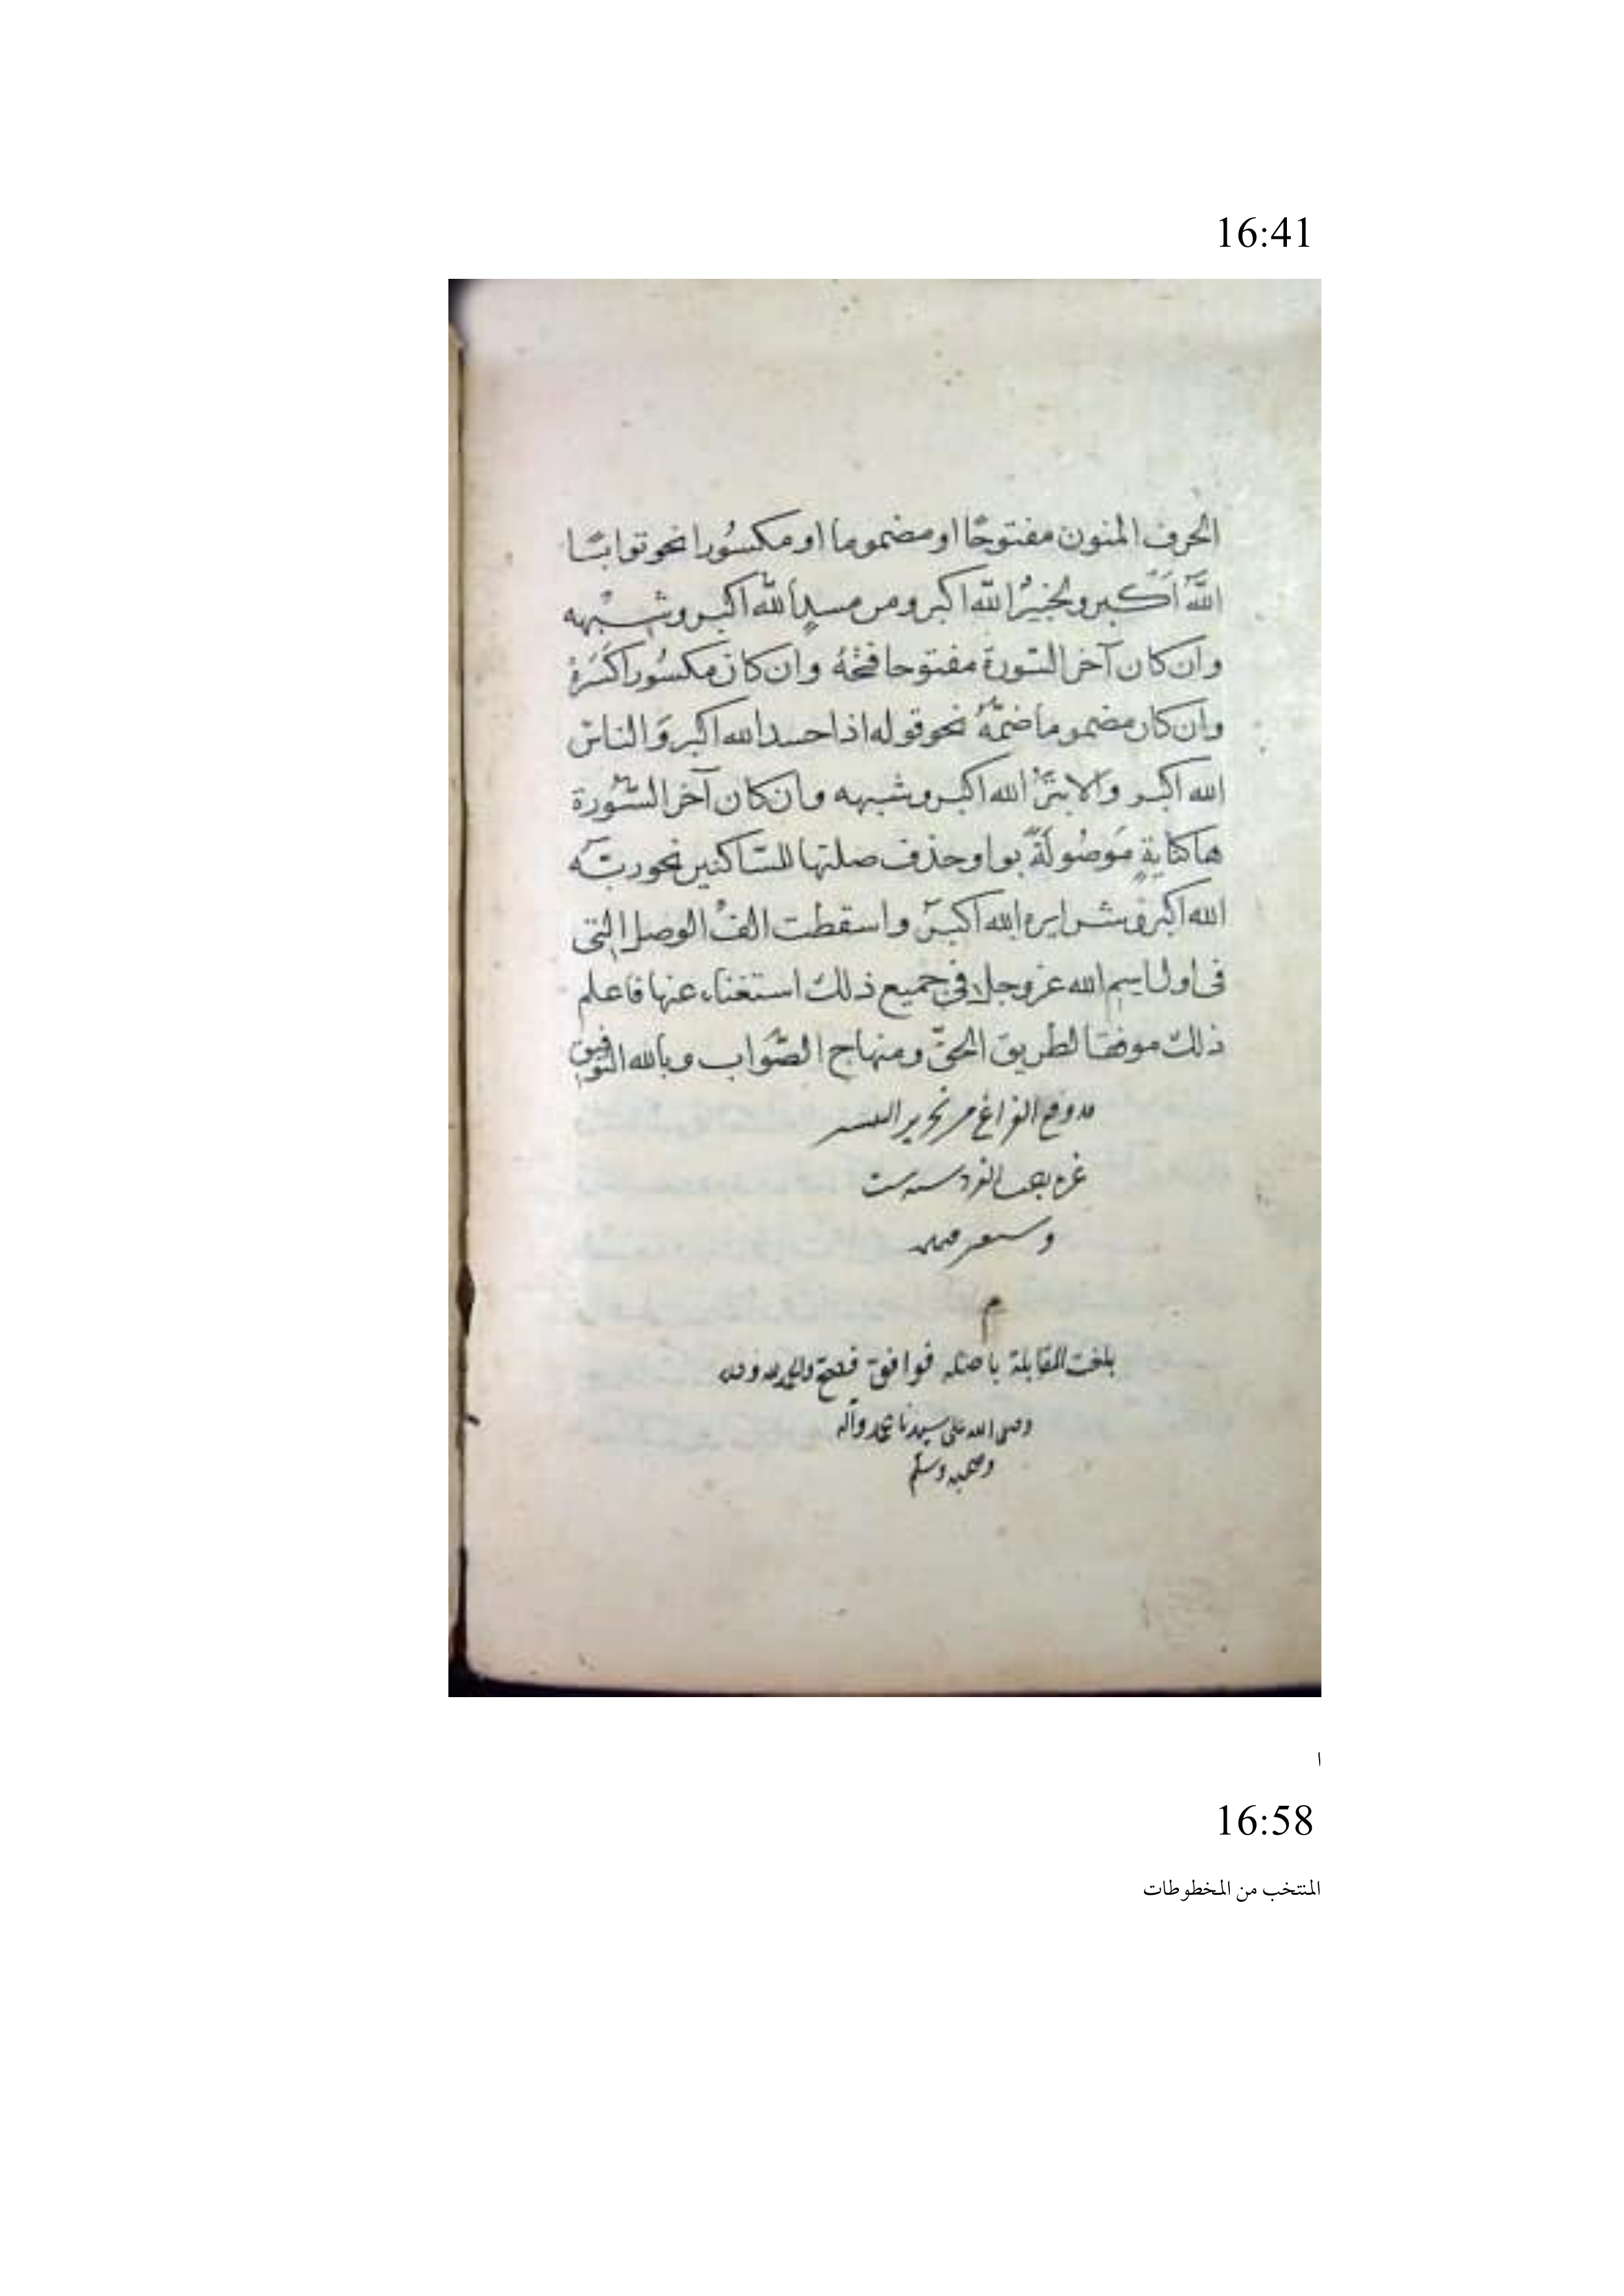 16:41
الحرف المنون مفتوحًا او مضموما او مكسُورا نحو توابًا
اللّه اكبر ولخبيرٌ اللّه اكبر ومن مسدٍ اللّه اكبر وشبهه
وان كان آخر السّورة مفتوحا فتحَهُ وان كان مكسُورا كسَرَهُ
وان كان مضموما ضمّهُ نحو قوله اذا حسد الله اكبر وَالناسِ
الله اكبر والابترُ الله اكبر وشبهه وان كان آخر السّورة
ها كنايةٍ مَوصُولَةً بواو حذف صلتها للسّاكنين نحو ربّه
الله اكبر وشرا يره الله اكبر واسقطت الف الوصل التى
فى اول اسم الله عز وجل فى جميع ذلك استغناء عنها فاعلم
ذلك موفقا لطريق الحقّ ومنهاج الصّواب وبالله التوفيق
الفراغ من تحرير
غرة
م
بلغت المقابلة باصله فوافق فصح
وصلى الله على سيدنا محمد وآله
وصحبه وسلم
ا
16:58
المنتخب من المخطوطات